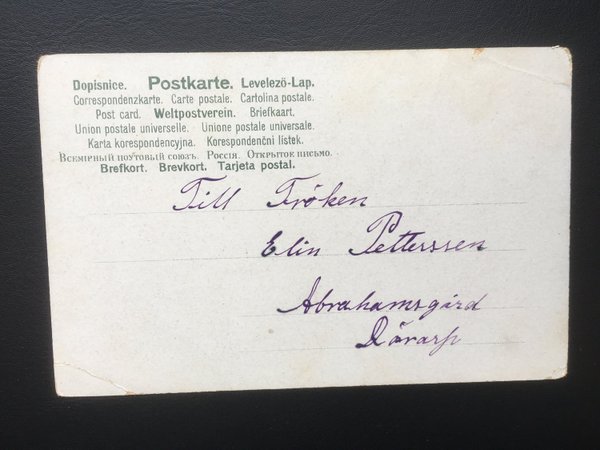 Dopisnice. Postkarte. Levelezö-Lap.
Correspondenzkarte. Carte postale. Cartolina postale.
Post card. Weltpostverein. Briefkaart.
Union postale universelle. Unione postale universale.
Karta korespondencyjna. Korespondenční listek.
Всемірный почтовый союзъ. Россія. Открытое письмо.
Brefkort. Brevkort. Tarjeta postal.
Till Fröken
Elin Petterssen
Abrahamsgård